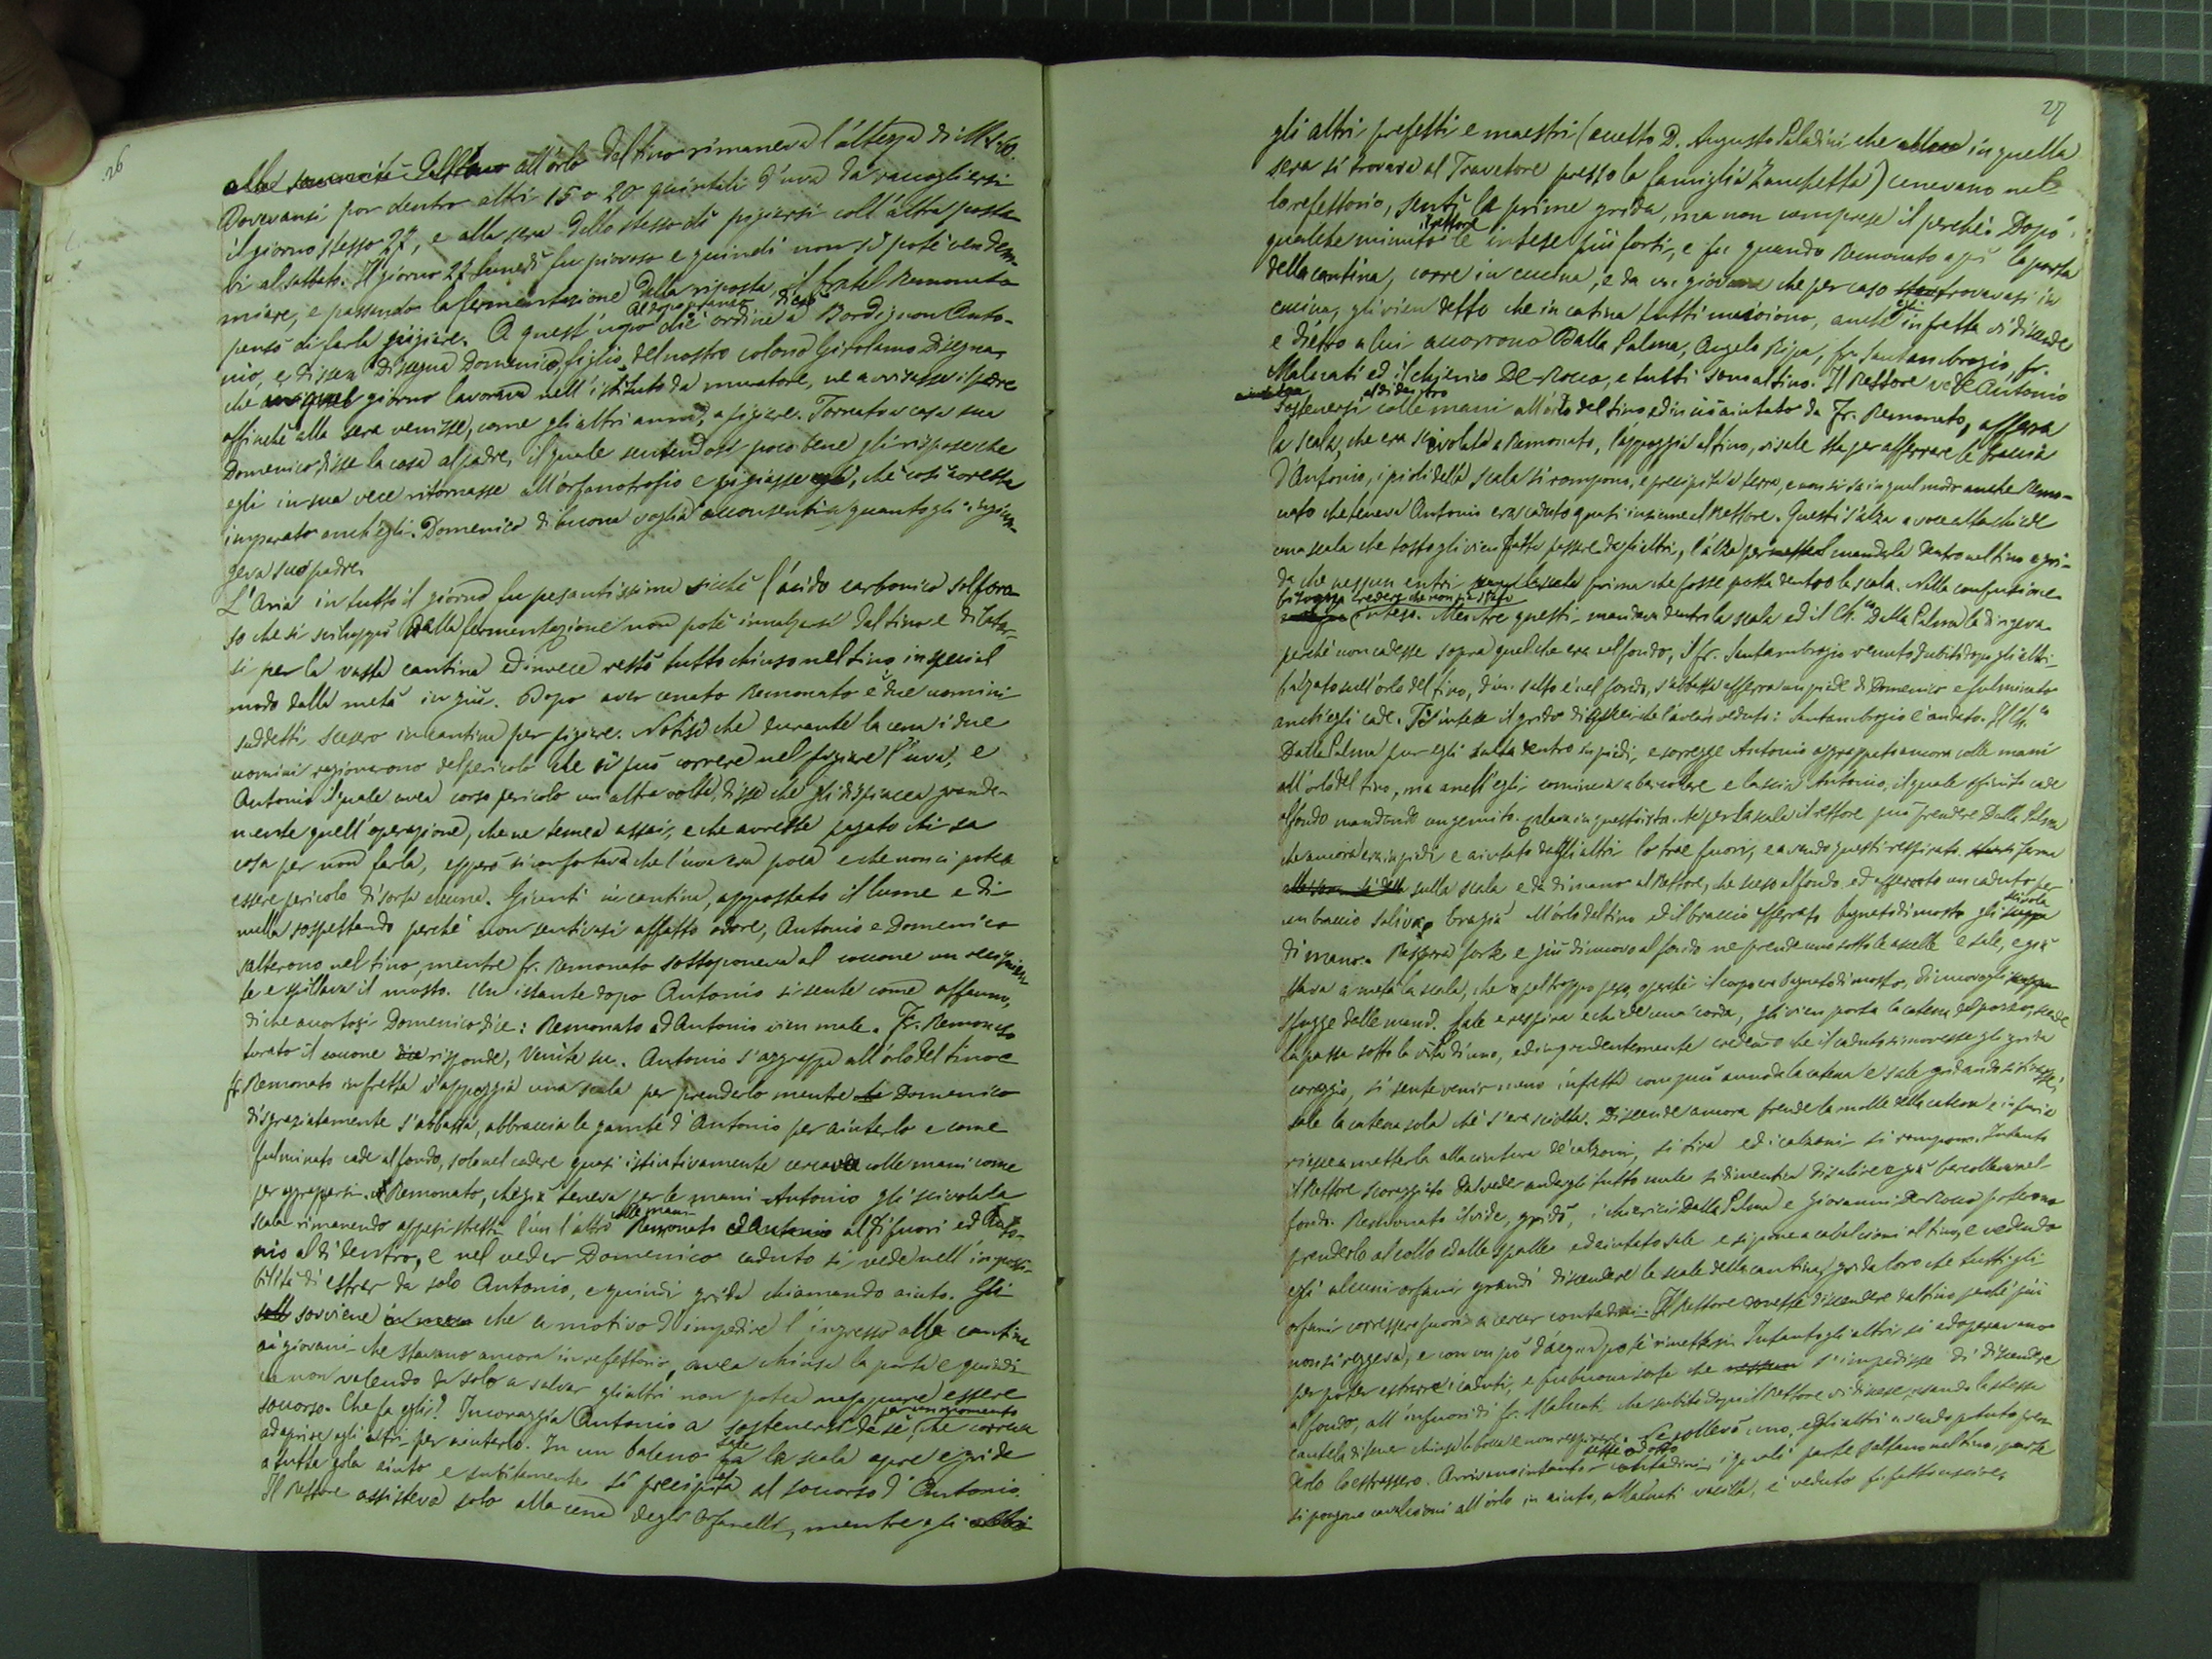 26
all'orlo del tino rimaneva l'altezza di M. 1.60.
Dovevansi por dentro altri 15 o 20 quintali d'uva da raccogliersi
il giorno stesso 27, e alla sera dello stesso dì pigiarsi coll'altra posta-
vi al sabbato. Il giorno 27 lunedì fu piovoso e quindi non si potè vendem-
miare, e passando la fermentazione della riposta, il fratel Remonato
pensò di farla pigiare. A quest'uopo diè ordine a Bordignon Anto-
nio, e disse a Disegna Domenico, figlio del nostro colono Girolamo Disegna,
che giorno lavorava nell'istituto da muratore, ne avvisasse il padre
affinchè alla sera venisse, come gli altri anni, a pigiare. Tornato a casa sua
Domenico, disse la cosa al padre, il quale sentendosi poco bene gli rispose che
egli in sua vece ritornasse all'orfanotrofio e pigiasse egli, chè così avrebbe
imparato anch'egli. Domenico di buona voglia acconsentì a quanto gli ingiun-
geva suo padre.
L'aria in tutto il giorno fu pesantissima sicchè l'acido carbonico solfora-
so che si sviluppò dalla fermentazione non potè innalzarsi dal tino e dilatar-
si per la vasta cantina ed invece restò tutto chiuso nel tino in special
modo dalla metà in giù. Dopo aver cenato Remonato e due uomini
suddetti scesero in cantina per pigiare. Notisi che durante la cena i due
uomini ragionarono del pericolo che si può correre nel pigiare l'uva, e
Antonio il quale avea corso pericolo un'altra volta, disse che gli dispiacea grande-
mente quell'operazione, che ne temea assai, e che avrebbe pagato chi sa
cosa per non farla, epperò si confortava che l'uva era poca e che non ci potea
essere pericolo di sorta alcuna. Giunti in cantina, appostato il lume e di
nulla sospettando perchè non sentivasi affatto odore, Antonio e Domenico
saltarono nel tino, mentre fr. Remonato sottoponeva al cocone un recipien-
te e spillava il mosto. Un istante dopo Antonio si sente come affanno,
di che accortosi Domenico dice: Remonato ad Antonio vien male. Fr. Remonato
turato il cocone risponde, Venite su. Antonio s'aggrappa all'orlo del tino e
fr. Remonato in fretta v'appoggia una scala per prenderlo mentre Domenico
disgraziatamente s'abbassa, abbraccia le gambe d'Antonio per aiutarlo e come
fulminato cade al fondo, solo nel cadere quasi istintivamente cercava colle mani come
per aggrapparsi. A Remonato, che già teneva per le mani Antonio gli scivola la
scala rimanendo appesi stretti l'un l'altro colle mani Remonato al di fuori ed Anto-
nio al di dentro, e nel veder Domenico caduto si vede nell'impossi-
bilità di estrar da solo Antonio, e quindi grida chiamando aiuto. Gli
sovviene che a motivo d'impedire l'ingresso alla cantina
ai giovani che stavano ancora in refettorio, avea chiusa la porta e quindi
non valendo da solo a salvar gli altri non potea neppure essere
soccorso. Che fa egli? Incoraggia Antonio a sostenersi da sè, per un momento che correva
ad aprire agli altri per aiutarlo. In un baleno sale la scala apre e grida
a tutta gola aiuto e subitamente si precipita al soccorso d'Antonio.
Il Rettore assisteva solo alla cena degli Orfanelli, mentre gli altri
27
gli altri prefetti e maestri (eccetto D. Augusto Paladini che in quella
sera si trovava al Travetore presso la famiglia Zanchetta) cenavano nel
lo refettorio, sentì le prime grida, ma non comprese il perchè. Dopo
qualche minuto il rettore le intese più forti, e fu quando Remonato aprì la porta
della cantina, corre in cucina, e da un giovane che per caso trovavasi in
cucina, gli vien detto che in cantina tutti muoiono, anche egli in fretta vi discende
e dietro a lui accorrono Dalla Palma, Angelo Ripa, fr. Santambrogio, fr.
Malacati ed il chierico De-Rocco, e tutti sono al tino. Il Rettore vede Antonio
sostenersi al di dentro colle mani all'orlo del tino ed in ciò aiutato da Fr. Remonato, afferra
la scala, che era scivolata a Remonato, l'appoggia al tino, vi sale sta per afferrare le braccia
d'Antonio, i pioli della scala si rompono, e precipita a terra, e non si sa in qual modo anche Remo-
nato che teneva Antonio era caduto quasi insieme al Rettore. Questi s'alza a voce alta chiede
una scala che tosto gli vien fatta passare dagli altri, l'alza per mandarla dentro nel tino e gri-
da che nessun entri prima che fosse posta dentro la scala. Nella confusione
bisogna credere che non sia stato inteso. Mentre questi mandava dentro la scala ed il Ch.co Dalla Palma la dirigeva
perchè non cadesse sopra quel che era nel fondo, il fr. Santambrogio venuto subito dopo gli altri
balzato sull'orlo del tino, d'un salto è nel fondo, s'abbassa afferra un piede di Domenico e fulminato
anch'egli cade. S'intese il grido di quei che l'avean veduto: Santambrogio è andato. Il Ch.co
Dalla Palma pur egli salta dentro in piedi, e sorregge Antonio aggrappato ancora colle mani
all'orlo del tino, ma anch'egli comincia a barcollare e lascia Antonio, il quale sfinito cade
al fondo mandando un gemito. per la scala il rettore può prendere Dalla Palma
che ancora era in piedi e aiutato dagli altri lo trae fuori, e avendo questi respirato ferma
sulla scala e dà di mano al Rettore, che sceso al fondo ed afferrato un caduto per
un braccio saliva e era già all'orlo del tino ed il braccio afferrato bagnato di mosto gli scivola
di mano. Respira forte e giù di nuovo al fondo ne prende uno sotto le ascelle e sale, e già
stava a metà la scala, che pel troppo peso, e perchè il corpo era bagnato di mosto, di nuovo gli
sfugge dalle mani. Sale e respira e chiede una corda, gli vien porta la catena del pozzo, scende
la passa sotto la vita d'uno, ed imprudentemente credendo che il caduto si movesse gli grida
coraggio, si sente venir meno in fretta com può annoda la catena e sale gridando si tirasse,
sale la catena sola chè s'era sciolta. Discende ancora prende la molla della catena e in furia
riesce a metterla alla cintura de' calzoni, si tira ed i calzoni si rompono. Intanto
il Rettore scoraggito dal veder andargli tutto male si dimentica di salire e già barcollava nel
fondo. Remonato il vide, gridò, i chierici Dalla Palma e Giovanni De-Rocco poterono
prenderlo al collo e dalle spalle ed aiutato sale e si pone a cavalcioni al tino, e vedendo
egli alcuni orfani grandi discendere le scale della cantina, grida loro che tutti gli
orfani corressero fuori a cercar contadini. Il Rettore dovette discendere dal tino perchè più
non si reggeva, e con un pò d'acqua potè rimettersi. Intanto gli altri si adoperavano
per poter estrarre i caduti, e fu buona sorte che s'impedisse di discendere
al fondo, all'infuori di fr. Malacati che subito dopo il Rettore vi discese, usando la stessa
cautela di tener chiusa la bocca e non respirare. Ne sollevò uno, e gli altri avendo potuto pren-
derlo lo estrassero. Arrivano intanto sette od otto contadini, i quali parte saltano nel tino, parte
si pongono cavalcioni all'orlo in aiuto, Malacati vacilla, è veduto fu fatto uscire,